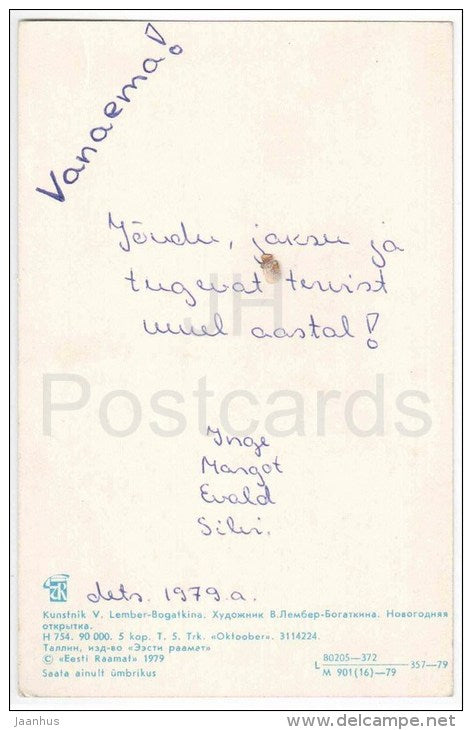 Vanaema!
Jõudu, jaksu ja
tugevat tervist
uuel aastal!
JH
Postcards
Inge
Margot
Evald
Silvi.
dets. 1979.a.
Kunstnik V. Lember-Bogatkina. Художник В.Лембер-Богаткина. Новогодняя
открытка.
Н 754. 90 000. 5 kop. T. 5. Trk. «Oktoober». 3114224.
Таллин, изд-во «Ээсти раамат»
© «Eesti Raamat» 1979
Saata ainult ümbrikus
L 80205—372 357—79
M 901(16)—79
jaanhus
www.delcampe.net